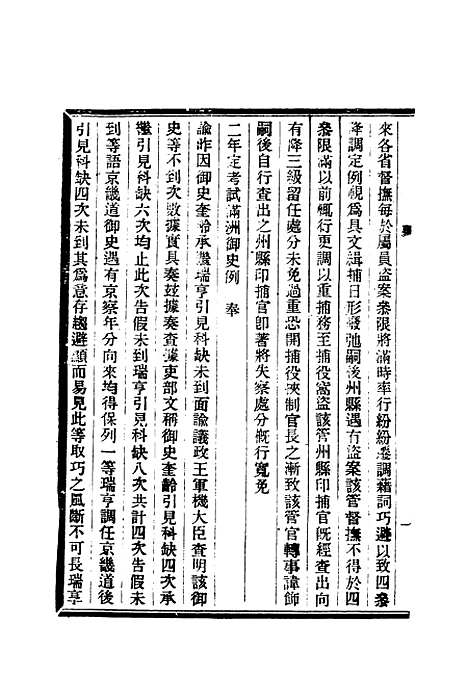 來各省督撫每於屬員盜案叅限將滿時率行紛紛遷調藉詞巧避以致四叅
降調定例視爲具文緝捕日形廢弛嗣後州縣遇有盜案該管督撫不得於四
叅限滿以前槪行更調以重捕務至捕役窩盜該管州縣印捕官旣經查出向
有降三級留任處分未免過重恐開捕役挾制官長之漸致該管官轉事諱飾
嗣後自行查出之州縣印捕官卽著將失察處分槪行寬免
二年定考試滿洲御史例 奉
諭昨因御史奎齡承繼瑞亨引見科缺未到面諭議政王軍機大臣查明該御
史等不到次數據實具奏玆據奏查據吏部文稱御史奎齡引見科缺四次承
繼引見科缺六次均止此次告假未到瑞亨引見科缺八次共計四次告假未
到等語京畿道御史遇有京察年分向來均得保列一等瑞亨調任京畿道後
引見科缺四次未到其爲意存趨避顯而易見此等取巧之風斷不可長瑞亨